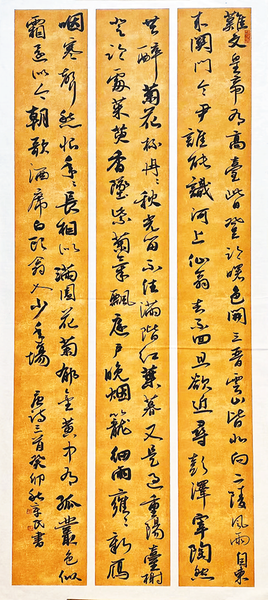 漢文皇帝有高臺此日登臨曙色開三晉雲山皆北向二陵風雨自東
來關門令尹誰能識河上仙翁去不回且欲近尋彭澤宰陶然
共醉菊花杯冉冉秋光留不住滿階紅葉暮又是過重陽臺榭
登臨處茱萸香墜紫菊氣飄庭戶晚烟籠細雨雍雍新雁
咽寒聲愁恨年年長相似滿園花菊鬱金黃中有孤叢色似
霜還似今朝歌酒席白頭翁入少年場
唐詩三首癸卯秋民書